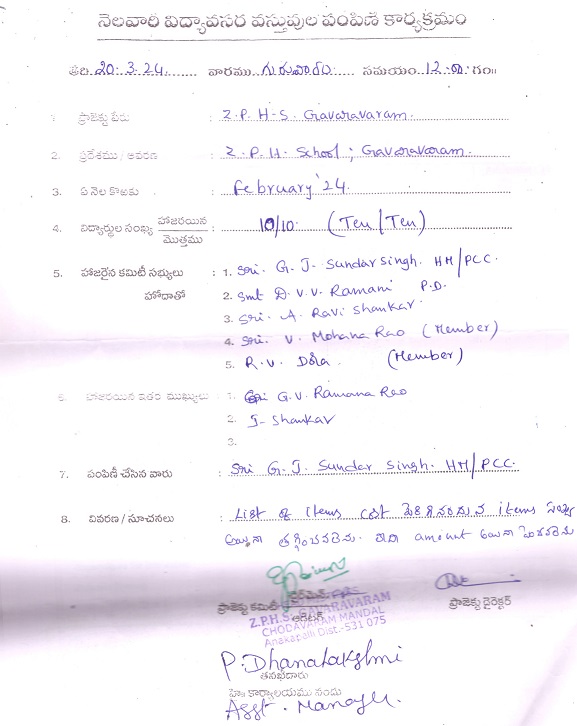 నెలవారీ విద్యావసర వస్తువుల పంపిణీ కార్యక్రమం
తేది 20.3.24 వారము గురువారం సమయం 12.00 గం॥
1. ప్రాజెక్టు పేరు : Z.P.H.S. Gavaravaram.
2. ప్రదేశము / ఆవరణ : Z.P.H. School; Gavaravaram.
3. ఏ నెల కొఱకు : February '24.
4. విద్యార్థుల సంఖ్య హాజరయిన / మొత్తము : 10/10. (Ten/Ten)
5. హాజరైన కమిటీ సభ్యులు : 1. Sri. G. J. Sundar Singh. HM/PCC.
హోదాతో 2. Smt D. V. V. Ramani P.D.
3. Sri. A. Ravi Shankar
4. Sri. V. Mohana Rao (Member)
5. R.V. (Member)
6. హాజరయిన ఇతర ముఖ్యులు : 1. Sri G.V. Ramana Rao
2. J. Shankar
3.
7. పంపిణీ చేసిన వారు : Sri G. J. Sundar Singh. HM/PCC.
8. వివరణ / సూచనలు : List of items cost పెరిగినందున items
అయినా తగ్గించవలెను. amount అయినా పెంచవలెను
ప్రాజెక్టు కమిటీ ఛైర్మెన్
ప్రాజెక్టు డైరెక్టర్
Z.P.H.S. GAVARAVARAM
CHODAVARAM MANDAL
Anakapalli Dist.-531 075
P. Dhanalakshmi
హె॥ కార్యాలయము నందు
Asst. Manager.